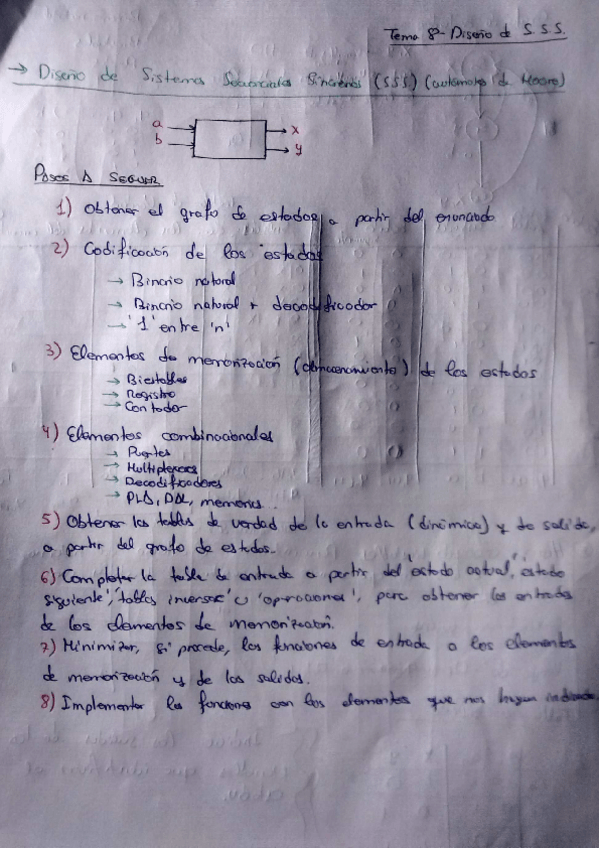 Tema 8 - Diseño de S.S.S.
→ Diseño de Sistemas Secuenciales Síncronos (S.S.S.) (autómatas de Moore)
a → → x
b → → y
PASOS A SEGUIR
1) Obtener el grafo de estados a partir del enunciado
2) Codificación de los estados
→ Binario natural
→ Binario natural + decodificador
→ '1' entre 'n'
3) Elementos de memorización (almacenamiento) de los estados
→ Biestables
→ Registro
→ Contador
4) Elementos combinacionales
→ Puertas
→ Multiplexores
→ Decodificadores
→ PLA, PAL, memorias.
5) Obtener las tablas de verdad de la entrada (dinámica) y de salida,
a partir del grafo de estados.
6) Completar la tabla de entrada a partir del 'estado actual', 'estado
siguiente', 'tablas inversas' u 'operaciones', para obtener las entradas
de los elementos de memorización.
7) Minimizar, si procede, las funciones de entrada a los elementos
de memorización y de las salidas.
8) Implementar las funciones con los elementos que nos hayan indicado.